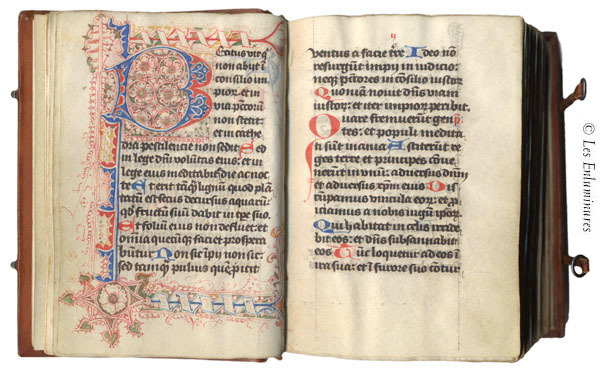 Beatus vir q̄
non abijt ī
consilio im
pior. et in
via pc̄corū
non stetit
et in cathe
dra pestilencie non sedit Sed
in lege dn̄i volūtas eius: et in
lege eius meditabit̄ die ac no
cte Et erit tamq̄ lignū quod plā
tatū est secus decursus aquarū:
qd̄ fructū suū dabit in tp̄e suo.
Et foliū eius non defluet: et
om̄ia quecūq̄ faciet prospera
būtur Non sic īpij non sic:
sed tamq̄ puluis quē p̄icit
ventus a facie tr̄e Ideo nō
resurgūt impij in iudicio:
neq̄ pc̄tores in cōsilio iustor
Quoniā nouit dn̄s viam
iustor: et iter impior peribit.
Quare fremuerūt gen
tes: et populi medita
ti sūt inania Astiterūt re
ges terre et principes cōue
nerūt in vnū: aduersus dn̄m
et aduersus xp̄m eius Dis
rūpamus vincula eor: et p̄o
iciamus a nobis iugū ip̄or.
Qui habitat in celis irride
bit eos: et dn̄s subsannabit
eos Tūc loquetur ad eos ī
ira sua: et ī furore suo cōtur
© Les Enluminures